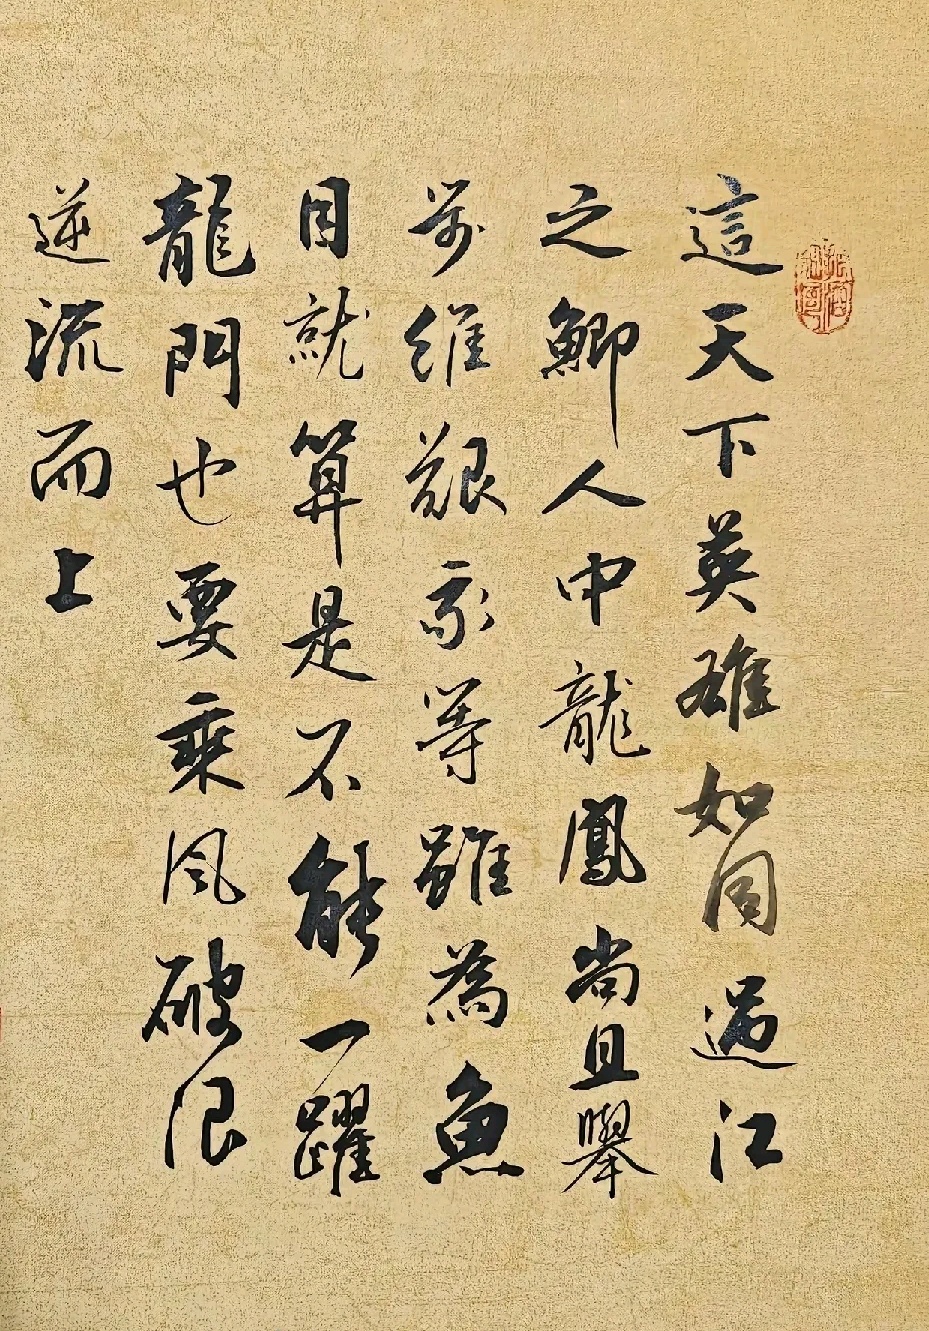 這天下英雄如同過江
之鯽人中龍鳳尚且舉
步維艱我等雖為魚
目就算是不能一躍
龍門也要乘風破浪
逆流而上